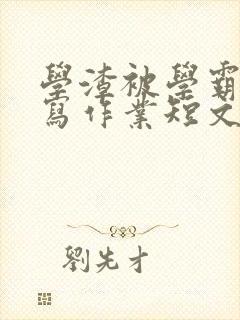 學渣被學霸
寫作業短文
劉先才